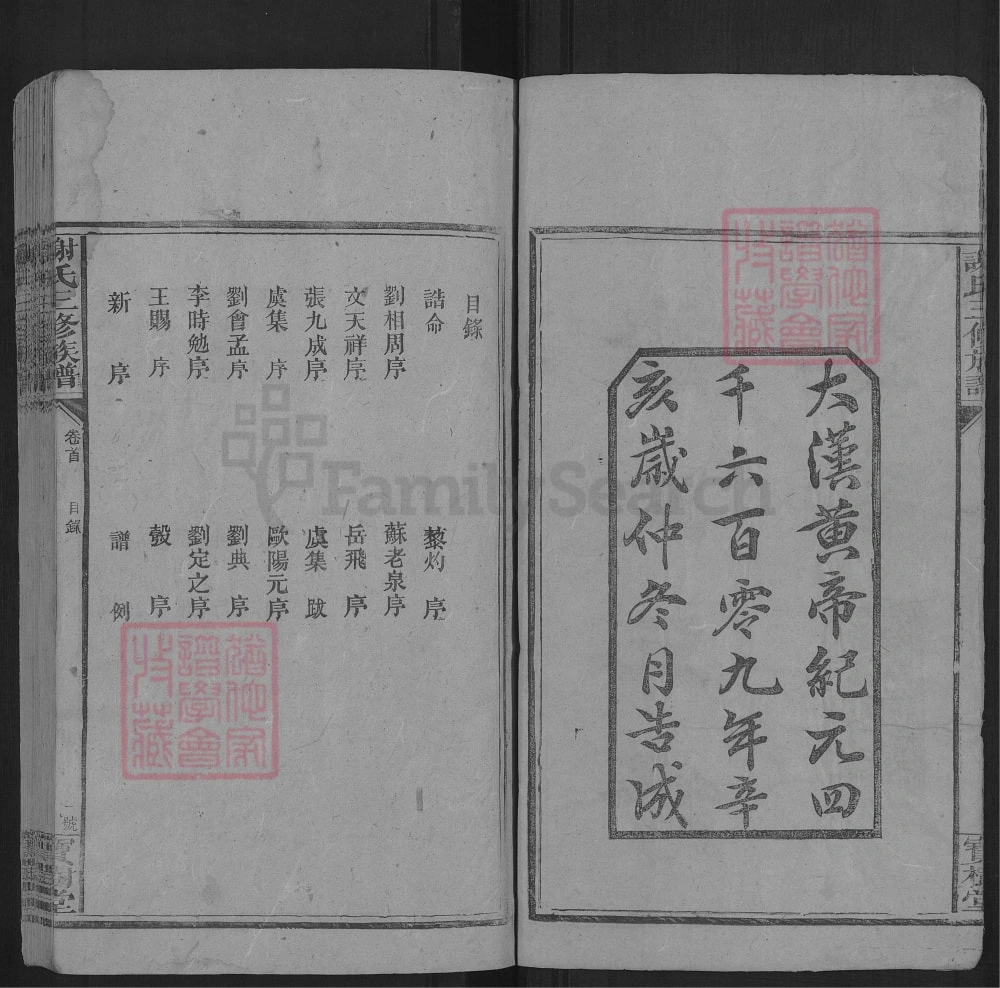 謝氏三修族譜
大漢黃帝紀元四
千六百零九年辛
亥歲仲冬月告成
寶樹堂
目錄
誥命
黎灼 序
劉相周序
蘇老泉序
文天祥序
岳飛 序
張九成序
虞集 跋
虞集 序
歐陽元序
劉會孟序
劉典 序
李時勉序
劉定之序
王賜 序
彀 序
新 序
譜 例
謝氏三修族譜
卷首
目錄
號
寶樹堂
譜學會
特藏
譜學會
特藏
FamilySearch